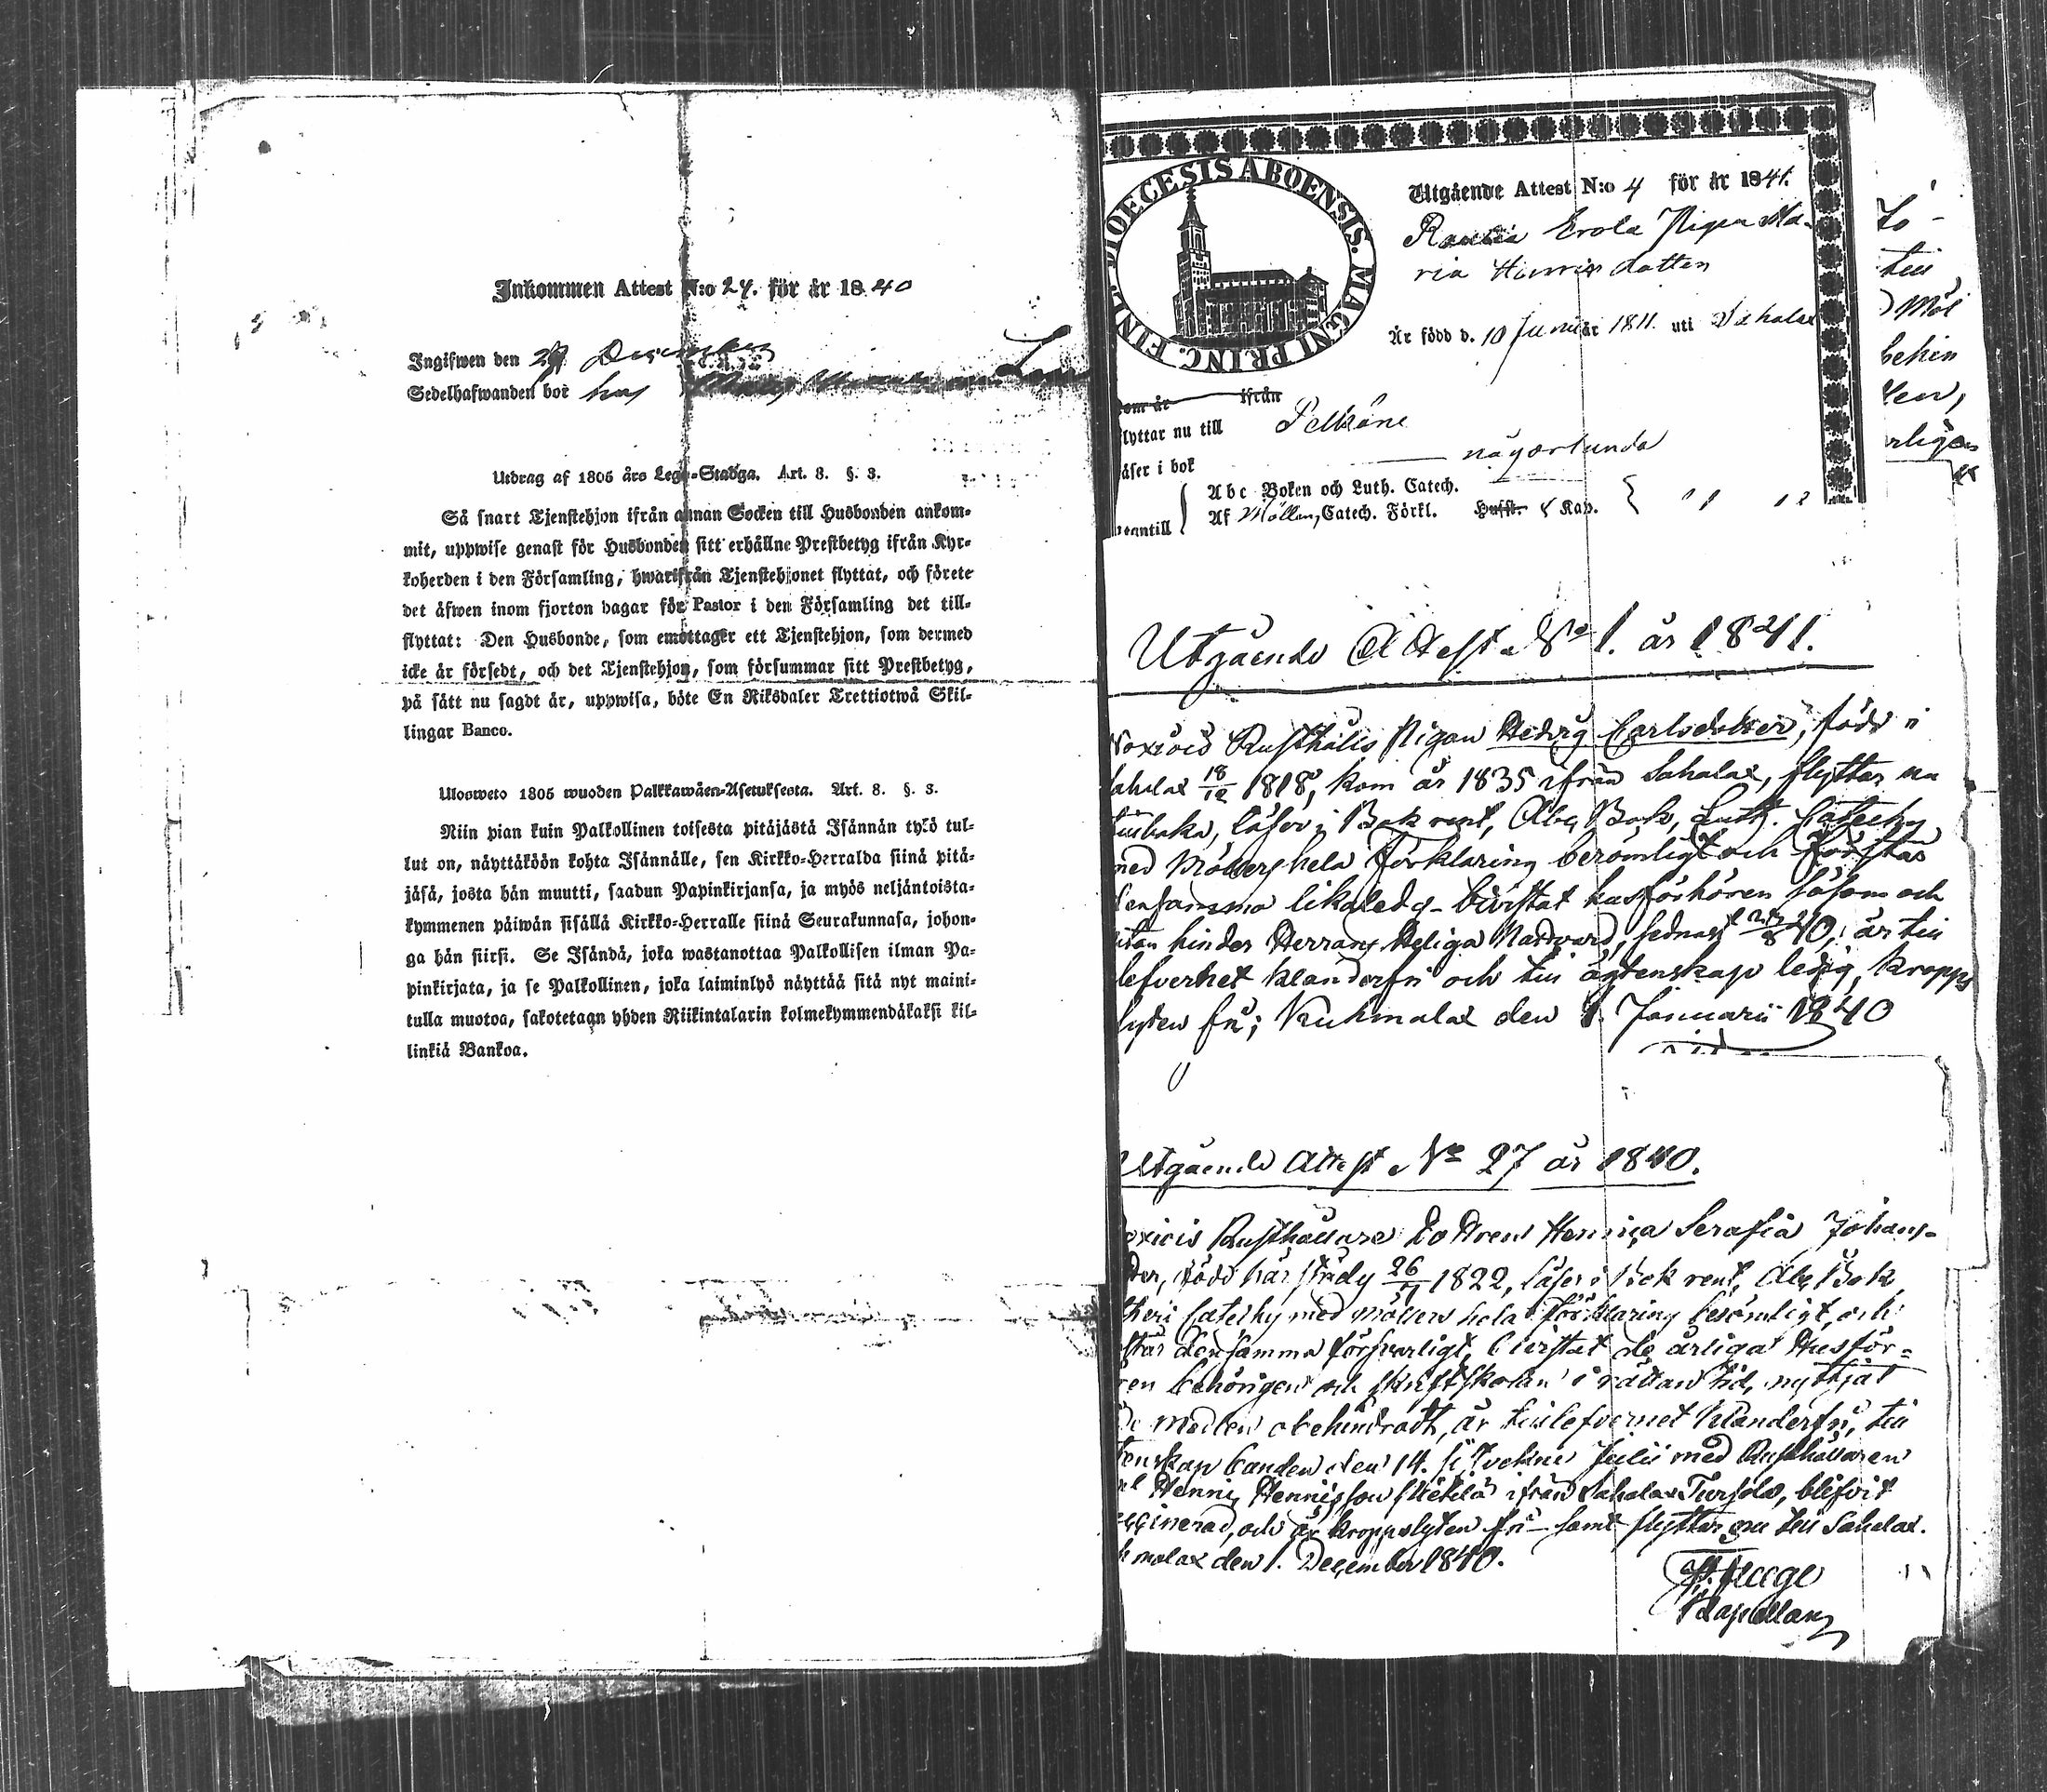 Inkommen Attest N:o 24. för år 1840
Ingifwen den 29 December
Sedelhafwanden bor hos
Utdrag af 1805 års Lego-Stadga. Art. 8. §. 3.
Så snart Tjenstehjon ifrån annan Socken till Husbonden ankom-
mit, uppwise genast för Husbonden sitt erhållne Prestbetyg ifrån Kyr-
koherden i den Församling, hwarifrån Tjenstehjonet flyttat, och förete
det äfwen inom fjorton dagar för Pastor i den Församling det till-
flyttat: Den Husbonde, som emottager ett Tjenstehjon, som dermed
icke är försedt, och det Tjenstehjon, som försummar sitt Prestbetyg,
på sätt nu sagdt är, uppwisa, böte En Riksdaler Trettiotwå Skil-
lingar Banco.
Ulosweto 1805 wuoden Palkkawäen-Asetuksesta. Art. 8. §. 3.
Niin pian kuin Palkollinen toisesta pitäjästä Isännän tykö tul-
lut on, näyttäköön kohta Isännälle, sen Kirkko-Herralda siinä pitä-
jäsä, josta hän muutti, saadun Papinkirjansa, ja myös neljäntoista-
kymmenen päiwän sisällä Kirkko-Herralle siinä Seurakunnasa, johon-
ga hän siirsi. Se Isändä, joka wastanottaa Palkollisen ilman Pa-
pinkirjata, ja se Palkollinen, joka laiminlyö näyttää sitä nyt maini-
tulla muotoa, sakotetaan yhden Riikintalarin kolmekymmendäkaksi kil-
linkiä Bankoa.
DIOECESIS ABOENSIS. MAGNI PRINC. FINL.
Utgående Attest N:o 4 för år 1841.
Erola Pigan Ma-
ria Henricsdotter
Är född d. 10 Junii år 1811. uti Sahalax
om är ifrån
flyttar nu till Pelkäne
läser i bok någorlunda
Abc Boken och Luth. Catech.
Af Möllers Catech. Förkl. Hufst. & Kap.
utantill
Utgående Attest No 1. år 1841.
Rusthålls Pigan Hedvig Carlsdotter, född i
Sahalax 18/12 1818, kom år 1835 ifrån Sahalax, flyttar nu
läser i Bok rent, Abc Bok, Luth. Catechs
med Möllers hela förklaring berömligt och förstår
densamma likaledes bivistat husförhören såsom och
utan hinder Herrans Heliga Nattvard, sednast 40, är till
lefvernet klanderfri och till ägtenskap ledig, kropps
lyten fri; Kuhmalax den 1. Januarii 1840
Utgående Attest No 27 år 1840.
Rusthållare Dottren Henrica Serafia Johans-
der, född härstädes 26/ 1822, läser i Bok rent, Abc Bok
theri Catechs med Möllers hela förklaring berömligt, och
står densamma försvarligt, bivistat de årliga Husför-
ren behörigen och skriftskolan i rättan tid, nyttjat
de medlen obehindradt, är till lefvernet klanderfri, till
tenskap bunden den 14. Julii med Rusthållaren
Henric Henricsson ifrån Sahalax Tursola, blifvit
vaccinerad, och är kroppslyten fri samt flyttar nu till Sahalax.
malax den 1. December 1840.
Kapellan